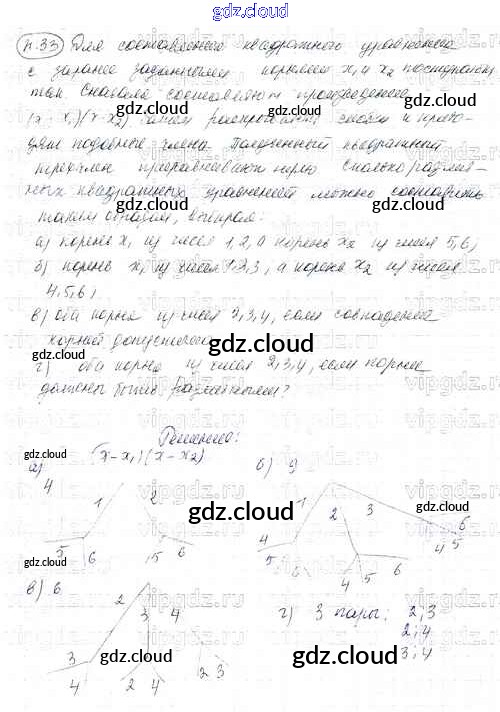 gdz.cloud
п.33 Для составления квадратного уравнения
с заранее заданными корнями x₁ и x₂ поступают
так Сначала составляют произведение
(x-x₁)(x-x₂) Затем раскрывают скобки и приво-
дят подобные члены. Полученный квадратный
трёхчлен приравнивают нулю Сколько различ-
ных квадратных уравнений можно составить
таким образом, выбирая:
а) корень x₁ из чисел 1, 2, а корень x₂ из чисел 5, 6,
б) корень x₁ из чисел 1, 2, 3, а корень x₂ из чисел
4, 5, 6,
в) оба корня из чисел 2, 3, 4, если совпадение
корней допустимо
г) оба корня из чисел 2, 3, 4, если корни
должны быть различными?
Решение:
(x-x₁)(x-x₂)
а) 4
1 2
5 6 5 6
б) 9
2 3
4 5 6 4 5 6 4 5 6
в) 6
2 3 4
3 4 2 4 2 3
г) 3 пары: 2; 3
2; 4
3; 4